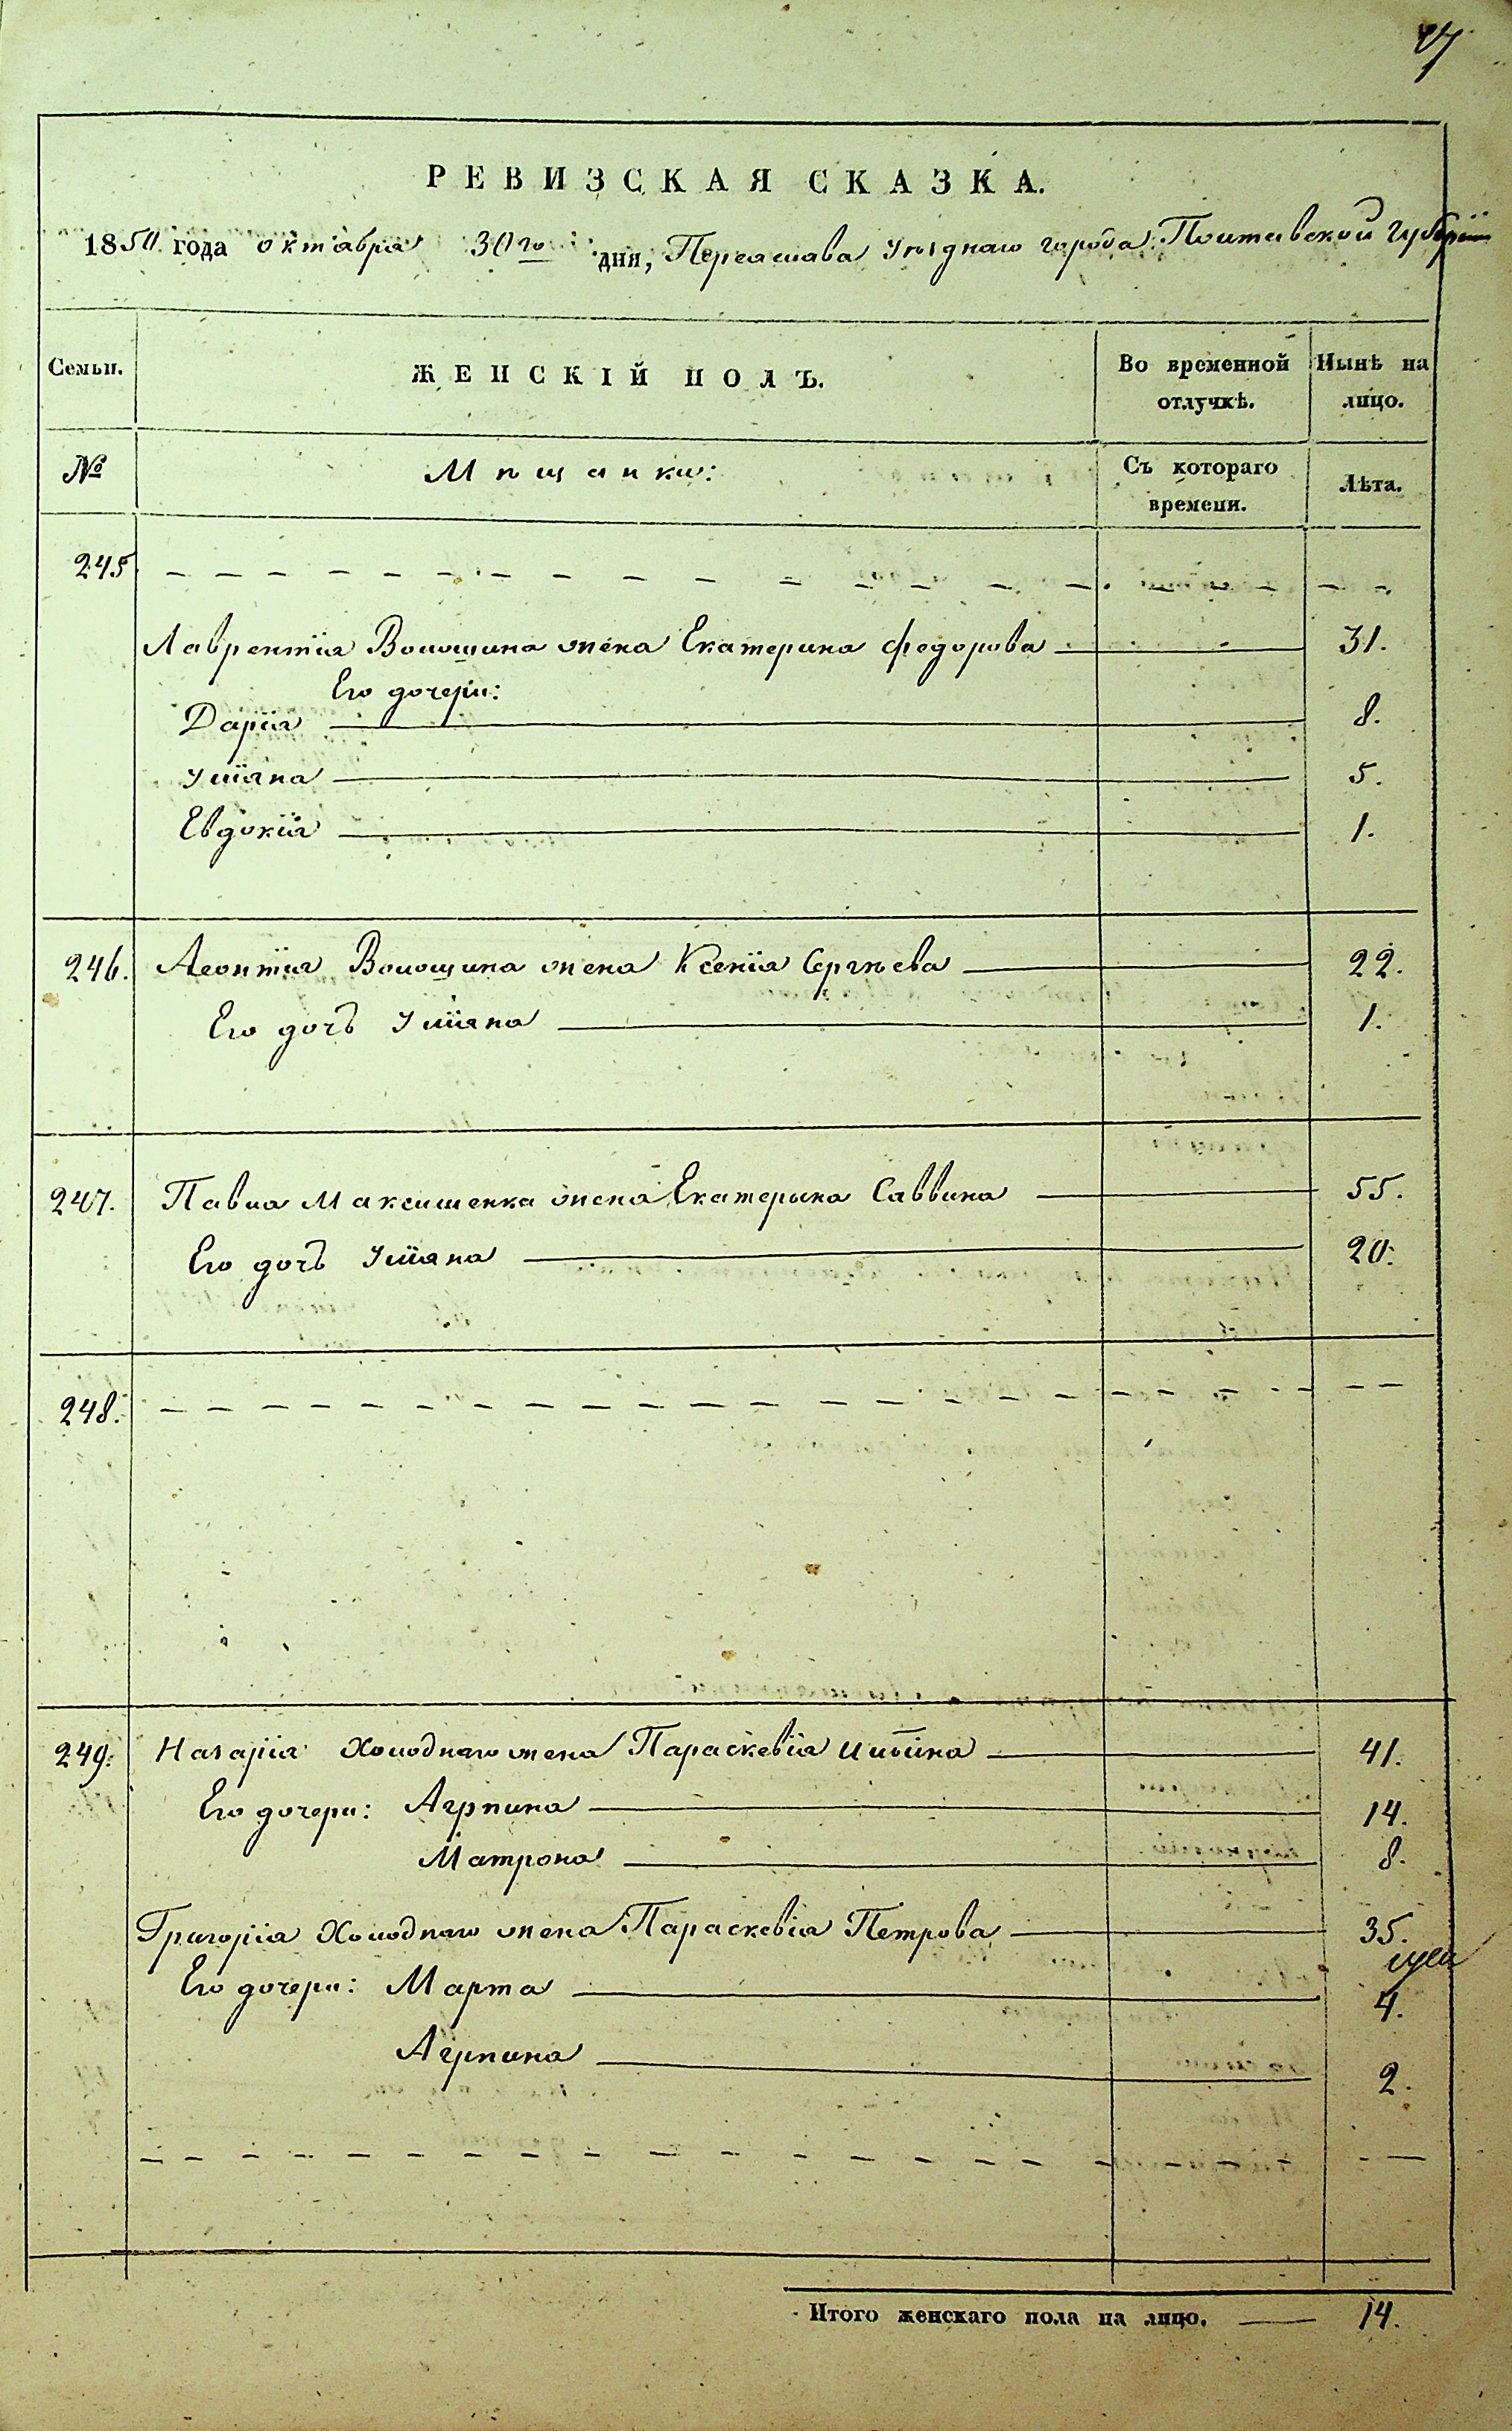 97
РЕВИЗСКАЯ СКАЗКА.
1850 года октабра 30го дня, Переяслава уѣзднаго города Полтавской Губерніи
Семьи. ЖЕНСКІЙ ПОЛЪ. Во временной отлучкѣ. Нынѣ на лицо.
№ Мѣщанки: Съ котораго времени. Лѣта.
245
Лаврентія Волошина жена Екатерина Федорова 31.
Его дочери:
Дарія 8.
Уліяна 5.
Евдокія 1.
246. Леонтія Волощина жена Ксенія Сергѣева 22.
Его дочь Уліяна 1.
247. Павла Максименка жена Екатерына Саввина 55.
Его дочь Уліяна 20.
248.
249. Назарія Холоднаго жена Параскевія 41.
Его дочери: Агрпина 14.
Матрона 8.
Григорія Холоднаго жена Параскевія Петрова 35.
Его дочери: Марта 4.
Агрпина 2.
Итого женскаго пола на лицо. 14.